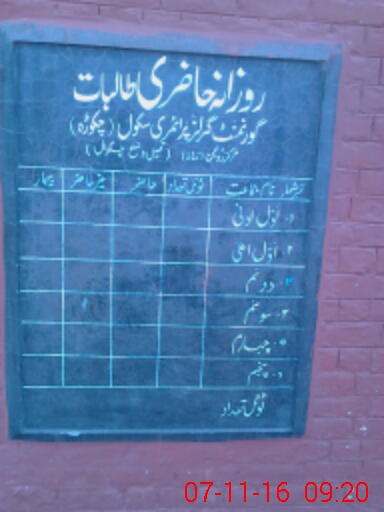 روزانہ حاضری طالبات
گورنمنٹ گرلز پرائمری سکول (چکوڑہ)
مرکز (تحصیل و ضلع چکوال)
نمبر شمار نام جماعت ٹوٹل تعداد حاضر غیر حاضر بیمار
۱۔ اول ادنیٰ
۲۔ اول اعلیٰ
۳ دوئم
۴۔ سوئم
۵۔ چہارم
۶۔ پنجم
ٹوٹل تعداد
07-11-16 09:20